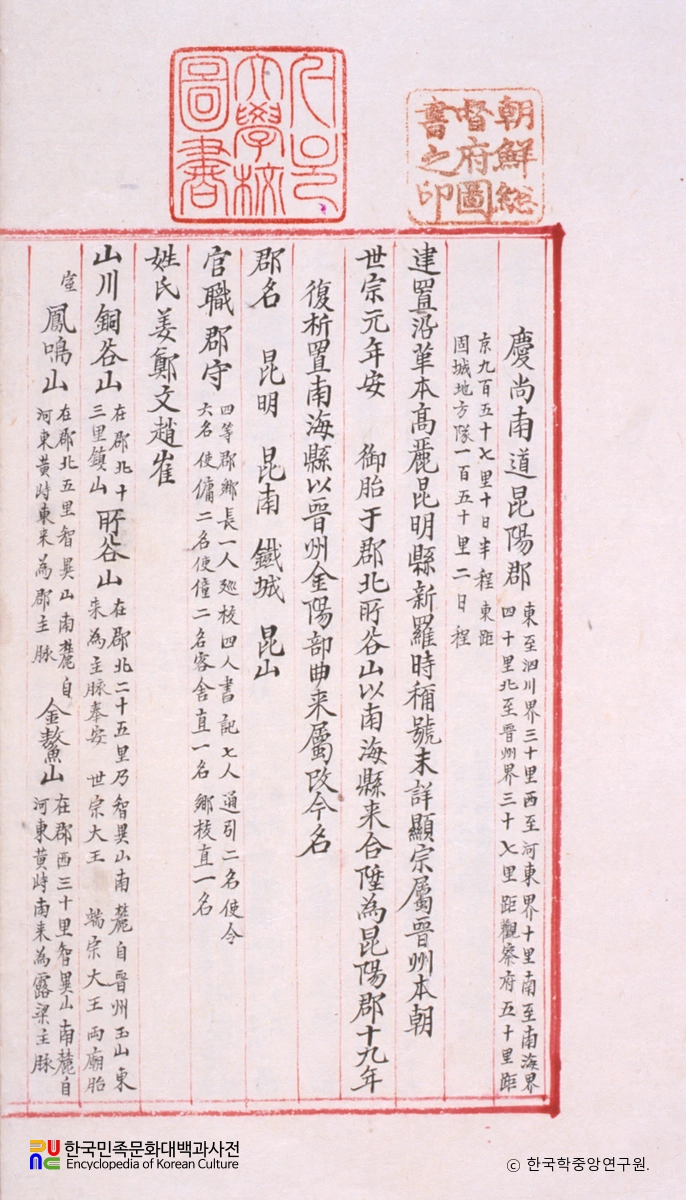 朝鮮総
督府圖
書之印
大學校
圖書
慶尚南道昆陽郡 東至泗川界三十里西至河東界十里南至南海界
四十里北至晉州界三十七里距觀察府五十里距
京九百五十七里十日半程東距
固城地方隊一百五十里二日程
建置沿革本高麗昆明縣新羅時稱號未詳顯宗屬晉州本朝
世宗元年安 御胎于郡北所谷山以南海縣来合陞為昆陽郡十九年
復析置南海縣以晉州金陽部曲来屬改今名
郡名 昆明 昆南 鐵城 昆山
官職郡守 四等郡鄉長一人廵校四人書記七人通引二名使令
六名使傭二名使僮二名客舍直一名鄉校直一名
姓氏姜鄭文趙崔
山川銅谷山 在郡北十
三里鎮山 所谷山 在郡北二十五里乃智異山南麓自晉州玉山東
来為主脉奉安 世宗大王 端宗大王両廟胎
室 鳳鳴山 在郡北五里智異山南麓自
河東黄峙東来為郡主脉 金鰲山 在郡西三十里智異山南麓自
河東黄峙南来為露梁主脉
한국민족문화대백과사전
Encyclopedia of Korean Culture
ⓒ 한국학중앙연구원.